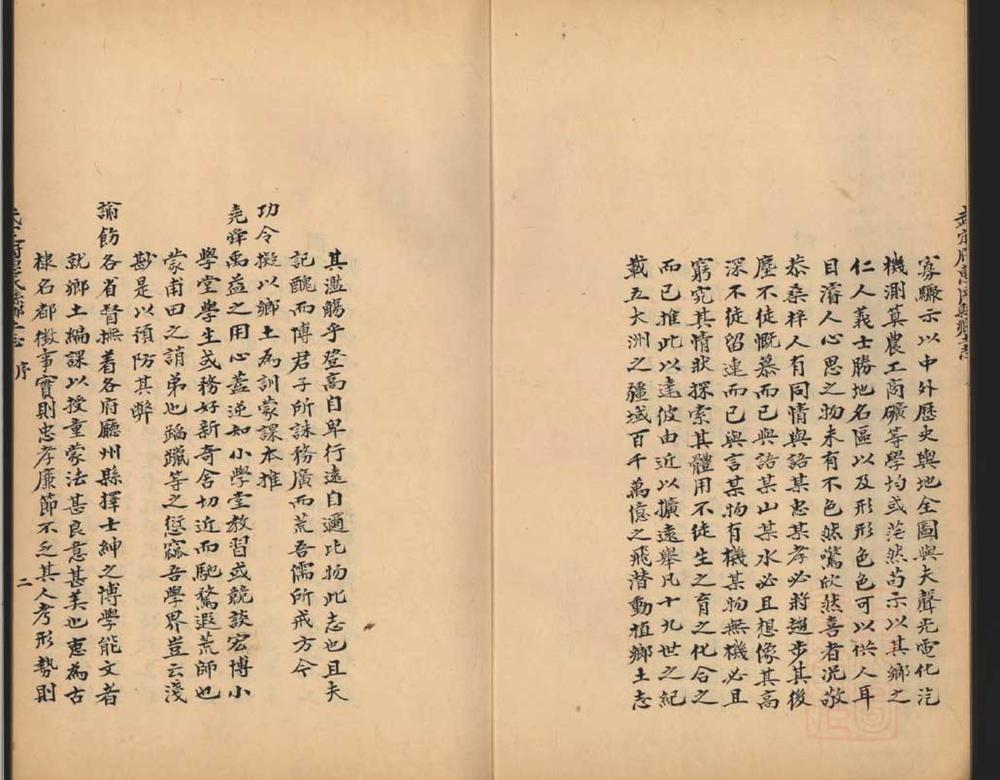 武定府惠民縣鄉土志
寡驟示以中外歷史輿地全圖與夫聲光電化汽
機測算農工商礦等學均或茫然茍示以其鄉之
仁人義士勝地名區以及形形色色可以供人耳
目濬人心思之物未有不色然驚欣然喜者况敬
恭桑梓人有同情與語某忠某孝必將趨步其後
塵不徒慨慕而已與語某山某水必且想像其高
深不徒留連而已與言某物有機某物無機必且
窮究其情狀探索其體用不徒生之育之化合之
而已推此以達彼由近以擴遠舉凡十九世之紀
載五大洲之疆域百千萬億之飛潛動植鄉土志
其濫觴乎登高自卑行遠自邇比物此志也且夫
記醜而博君子所誅務廣而荒吾儒所戒方今
功令擬以鄉土為訓蒙課本推
堯舜禹益之用心蓋逆知小學堂教習或競談宏博小
學堂學生或務好新奇舍切近而馳騖遐荒師也
蒙甫田之誚弟也蹈躐等之愆寙吾學界豈云淺
尠是以預防其弊
諭飭各省督撫着各府廳州縣擇士紳之博學能文者
就鄉土編課以授童蒙法甚良意甚美也惠為古
棣名都徵事實則忠孝廉節不乏其人考形勢則
武定府惠民縣鄉土志 序 二